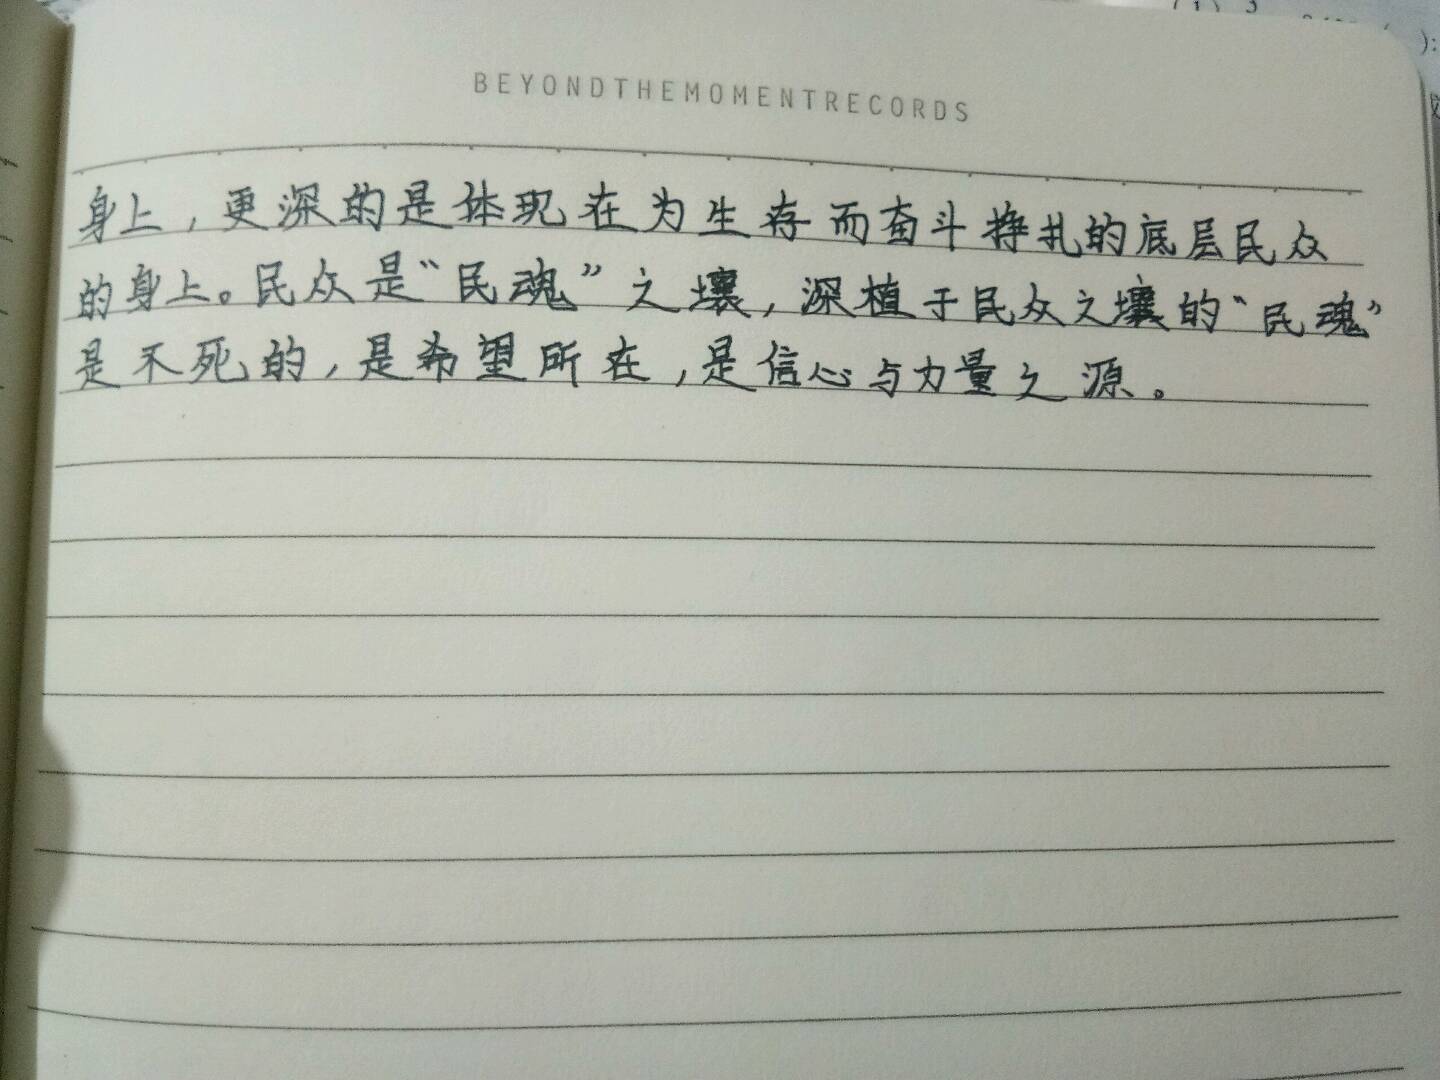 BEYONDTHEMOMENTRECORDS
身上，更深的是体现在为生存而奋斗挣扎的底层民众
的身上。民众是“民魂”之壤，深植于民众之壤的“民魂”
是不死的，是希望所在，是信心与力量之源。